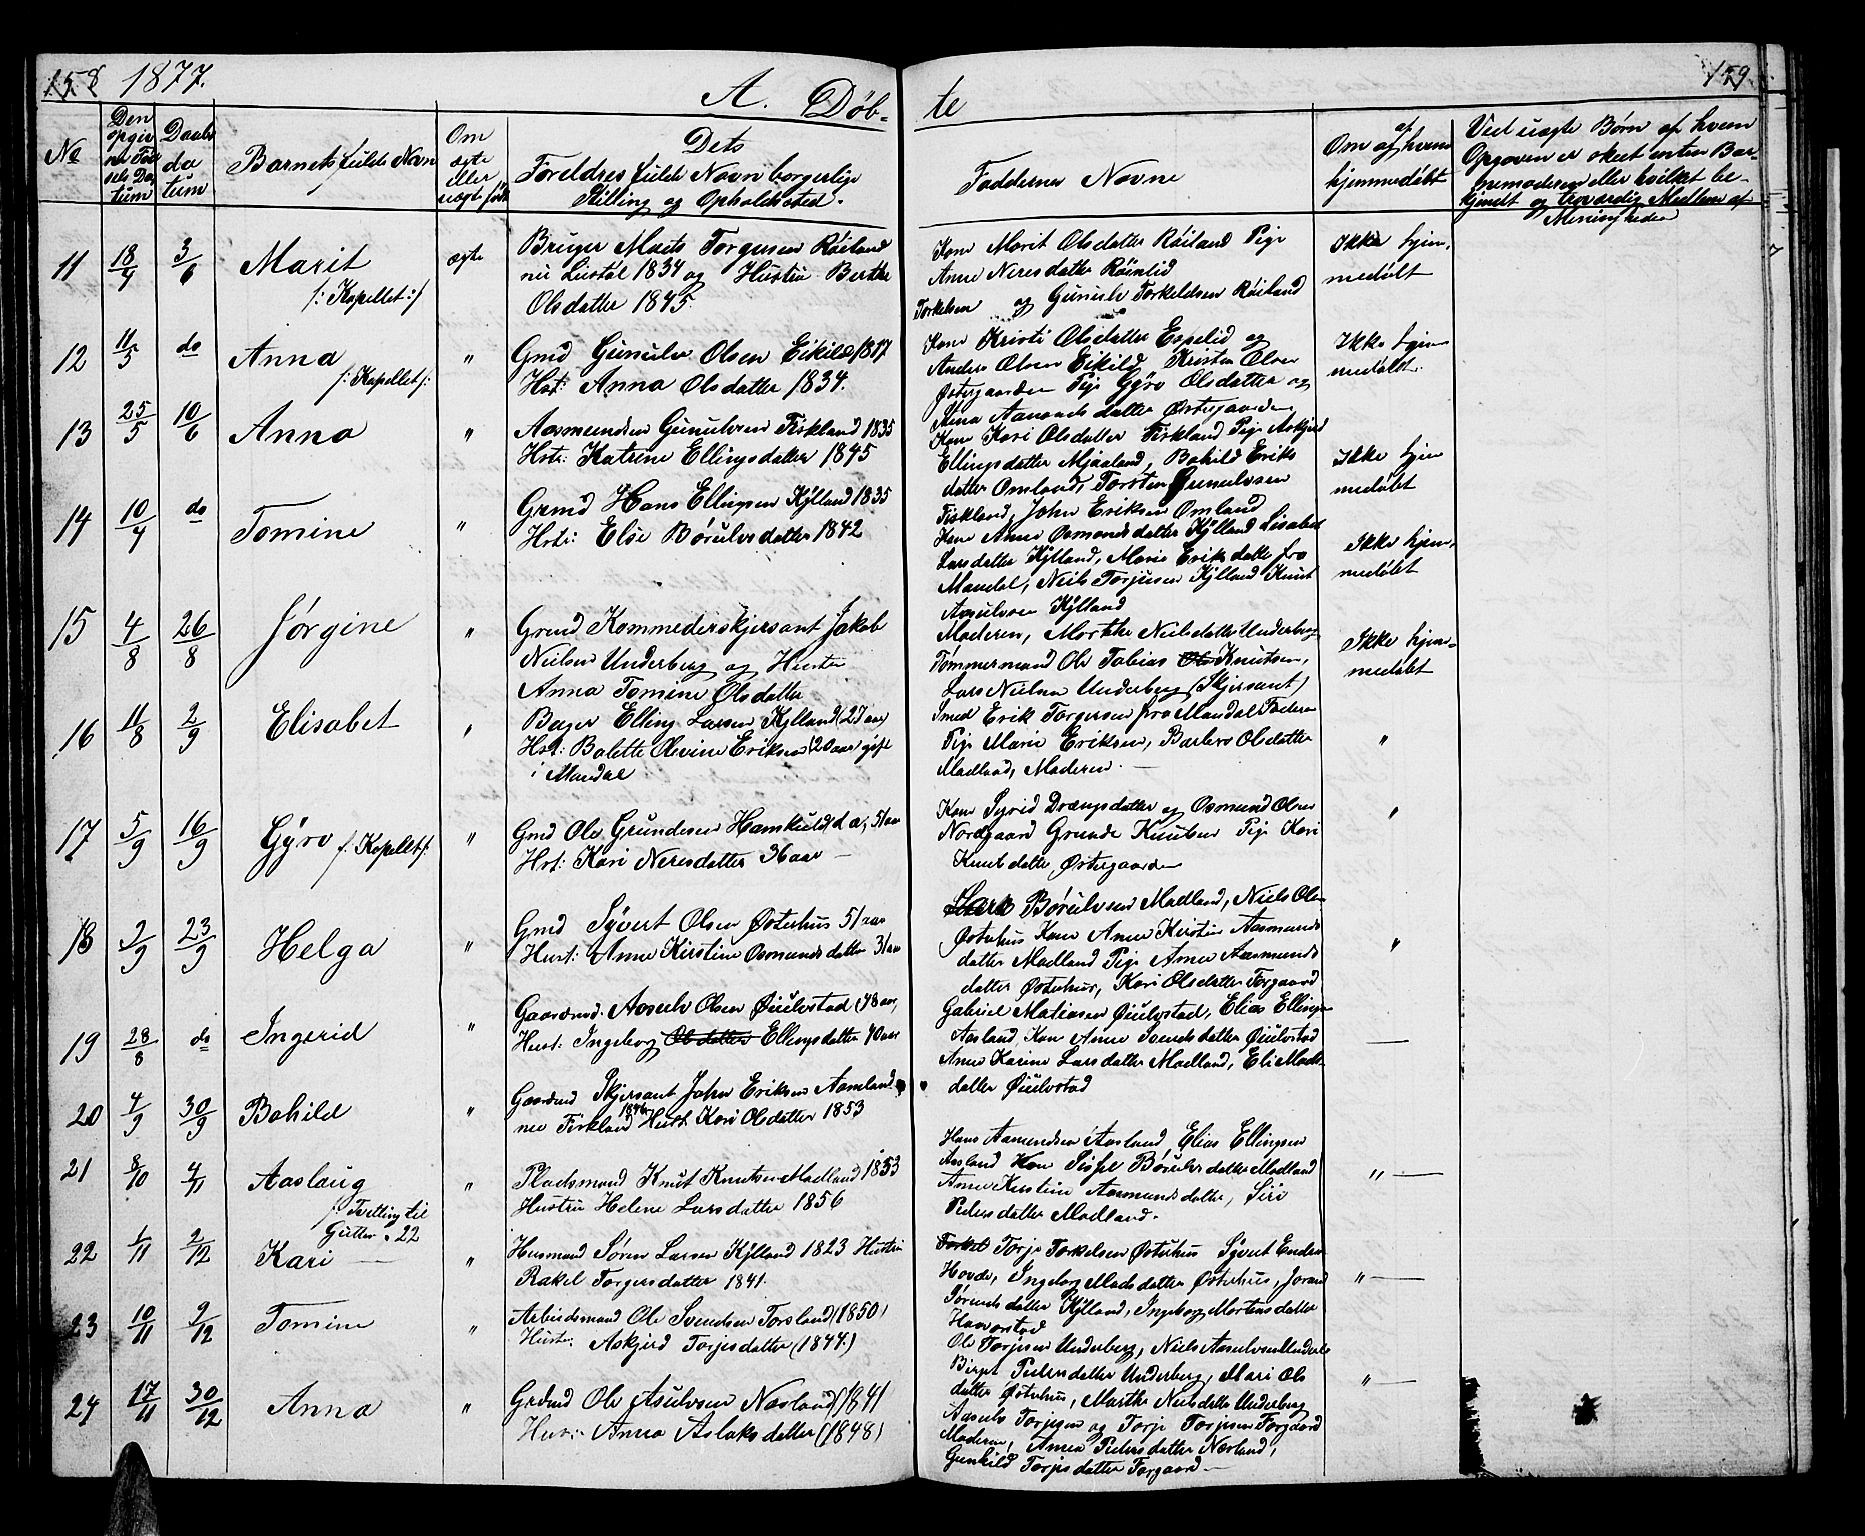 158 1877.
A. Døb-
te
159.
No
Den opgivne Fødsels Datum
Daabs datum
Barnets fulde Navn
Om ægte eller uægte født
Dets
Foreldres fulde Navn borgerlige
Stilling og Opholdssted.
Faddernes Navne
Om og af hvem
hjemmedøbt
Ved uægte Børn af hvem
Opgaven er skeet enten Bar-
nemoderen eller hvilket be-
kjendt og troværdig Medlem af
Menigheden
11 18/4 3/6 Marit ægte
/: Kapellet :/
Bruger Mats Torgersen Røiland
1834 og Hustru Berthe
Olsdatter 1845.
Kone Marit Olsdatter Røiland Pige
Anne Neresdatter Røinlid
Torkelsen og Gunulv Torkeldsen Røiland
Ikke hjem-
medøbt
12 11/5 do Anna "
/: Kapellet :/
Gmd Gunulv Olsen Eikild 1817
Hst: Anna Olsdatter 1834.
Kone Kristi Olsdatter Espelid og
Anders Olsen Eikild Kristen Olsen
Østergaarden Pige Gyro Olsdatter og
Stina Aanondsdatter Østergaarden
Ikke hjem
medøbt.
13 25/5 10/6 Anna "
Aasmundsen Gunulvsen Fiskland 1835
Hstr: Katrine Ellingsdatter 1845
Kone Kari Olsdatter Fiskland Pige Askjerd
Ellingsdatter Mjaaland, Bohild Eriks
datter Omland, Torsten Gunulvsen
Fiskland, John Eriksen Omland
Ikke hjem
medøbt
14 10/4 do Tomine "
Grmd Hans Ellingsen Kylland 1835
Hstr: Else Børulvsdatter 1842
Kone Anne Osmondsdatter Kylland Lisabet
Larsdatter Kylland, Marie Eriksdatter fra
Mandal, Neils Torjusen Kylland Knut
Aasulvsen Kylland
Ikke hjem-
medøbt
15 4/8 26/8 Jørgine "
Grmd Kommederskjersant Jakob
Nielsen Underberg og Hustru
Anna Tomine Olsdatter
Moderen, Marthe Neilsdatter Underberg
Tømmermand Ole Tobias Ole Knutsen,
Lars Nielsen Underberg (Skjersant)
Ikke hjem-
medøbt
16 11/8 2/9 Elisabet "
Bager Elling Larsen Kylland (27 aar)
Hst: Bolette Olevine Eriksen (20 aar) gift
i Mandal
Smed Erik Torgersen fra Mandal Faderen
Pige Marie Eriksen, Barbro Olsdatter
Madland, Moderen. —
"
17 5/9 16/9 Gyro /: Kapellet :/ "
Gmd Ole Grundesen Homkuld d a, 51 aar
Hst: Kari Neresdatter 36 aar —
Kone Sigrid Drængsdatter og Osmund Olsen
Nordgaard Grunde Knutsen Pige Kari
Knutsdatter Østergaarden
"
18 2/9 23/9 Helga "
Gmd Syvert Olsen Østerhus 51 aar
Hust: Anne Kirstine Osmundsdatter 31 aar
Lars Børulvsen Madland, Niels Olsen
Østerhus Kone Anne Kirstin Aasmunds
datter Madland Pige Anne Aasmunds
datter Østerhus, Kari Olsdatter Forgaard
"
19 28/8 do Ingerid "
Gaardmd. Aasulv Olsen Øiulvstad (48 aar,
Hust: Ingeborg Olsdatter Ellingsdatter 40 aar
Gabriel Matiasen Øiulvstad, Elias Ellingsen
Aasland, Kone Anne Svendsdatter Øiulvstad
Anne Karine Larsdatter Madland, Eli Mads-
datter Øiulvstad
—
20 4/9 30/9 Bohild "
Gaardmd Skjersant John Eriksen Aamland
Fiskland 1846 Hust Kari Olsdatter 1853
21 8/10 4/11 Aaslaug "
Pladsmand Knut Knutsen Madland 1853
Hustru Helene Larsdatter 1856
Hans Aamundsen Aasland, Elias Ellingsen
Aasland Kone Sissel Børulvsdatter Madland
Anne Kirstine Aasmundsdatter, Siri
Pedersdatter Madland.
" —
/: Tvilling til
Gutter n 22
22 1/11 2/12 Kari — "
Husmand Søren Larsen Kylland 1823 Hustru
Rakel Torgersdatter 1841.
Torkel Torje Torkelsen Østerhus Syvert Endersen
Hovde, Ingeborg Madsdatter Østerhus, Jorand
Sørensdatter Kylland, Ingeborg Mortensdatter
Haaverstad
" —
23 10/11 2/12 Tomine "
Arbeidsmand Ole Svendsen Forsland (1850)
Hustr: Askjerd Torjesdatter (1844.)
Ole Torjesen Underberg, Niels Aasulvsen Underb
Birgit Pedersdatter Underberg, Mari Ols
datter Østerhus, Marthe Neilsdatter Underberg
" —
24 17/11 30/12 Anna "
Grdmd Ole Asulvsen Norland (1841
Hus: Anna Aslaksdatter (1848)
Aasulv Torjesen og Torje Torjesen Forgaard
Moderen, Anne Pedersdatter Norland,
Gunhild Torjesdatter Forgaard —